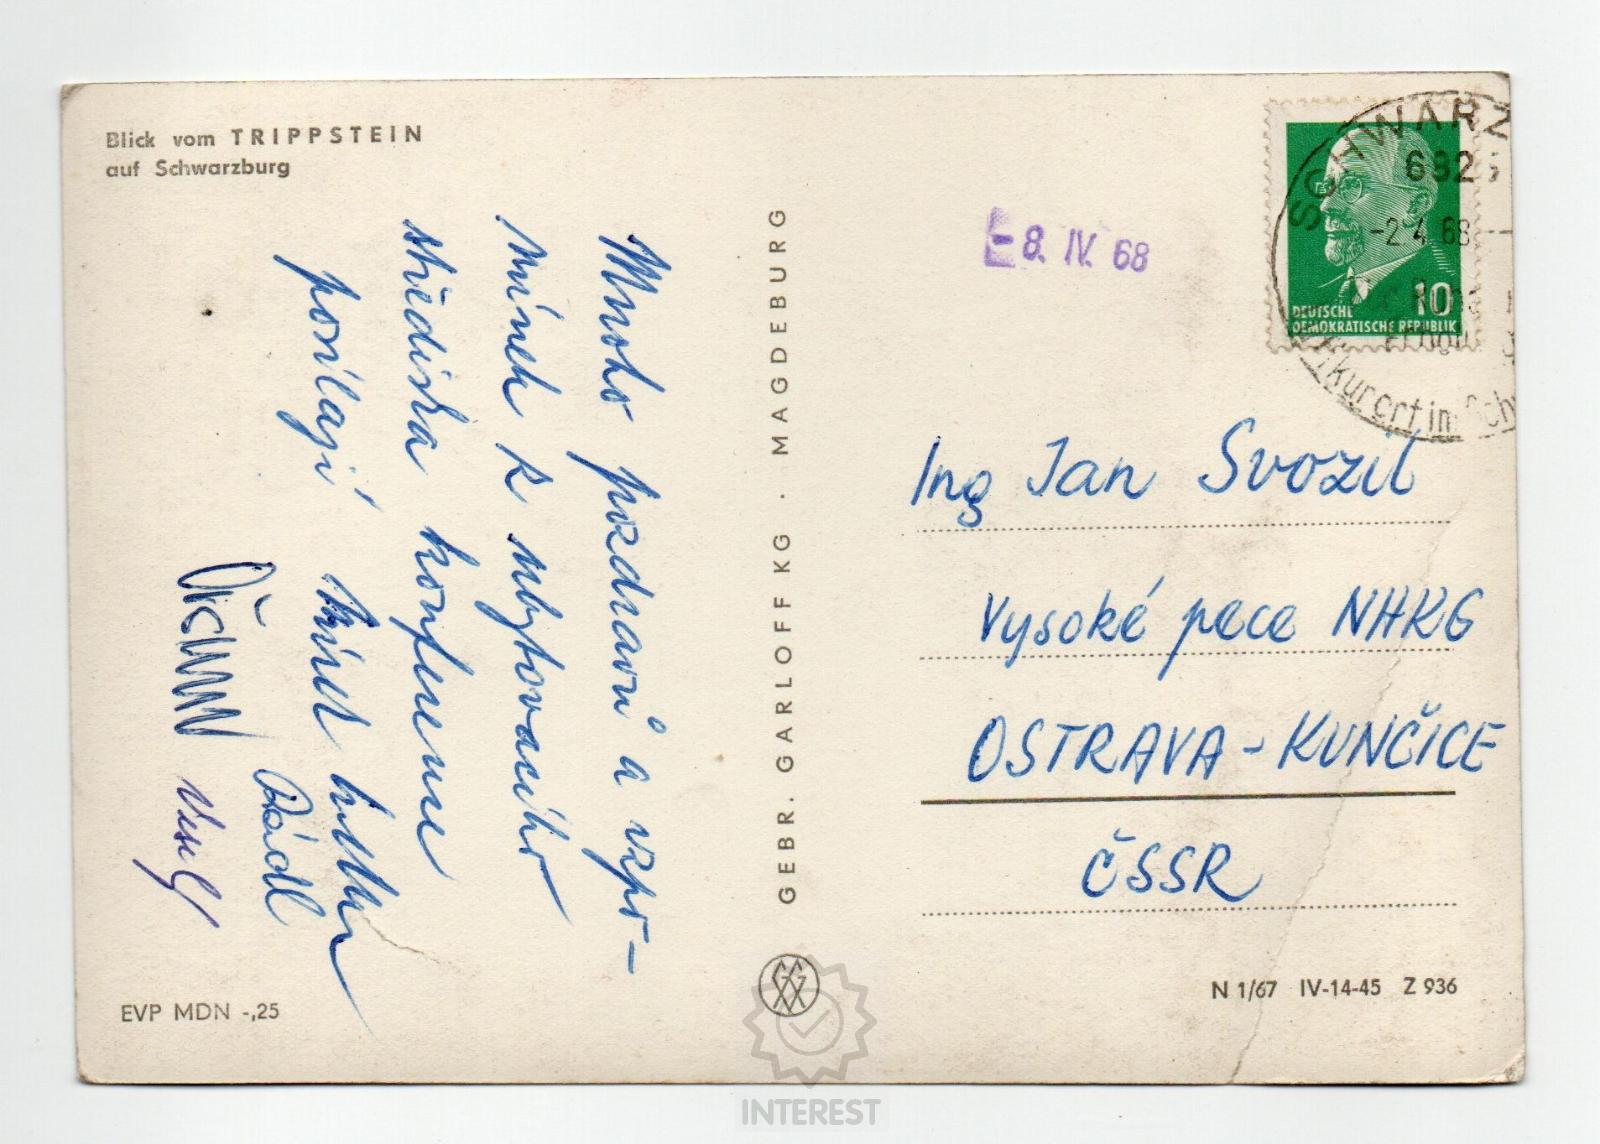 Blick vom TRIPPSTEIN
auf Schwarzburg
Mnoho pozdravů a vzpo-
mínek k ubytovacího
střediska
posílají
Rádl
Veselý
EVP MDN -,25
GEBR. GARLOFF KG · MAGDEBURG
-8. IV. 68
SCHWARZ
682
-2.4.68
Kurort im Sch
10
DEUTSCHE
DEMOKRATISCHE REPUBLIK
Ing Jan Svozil
Vysoké pece NHKG
OSTRAVA-KUNČICE
ČSSR
N 1/67 IV-14-45 Z 936
INTEREST